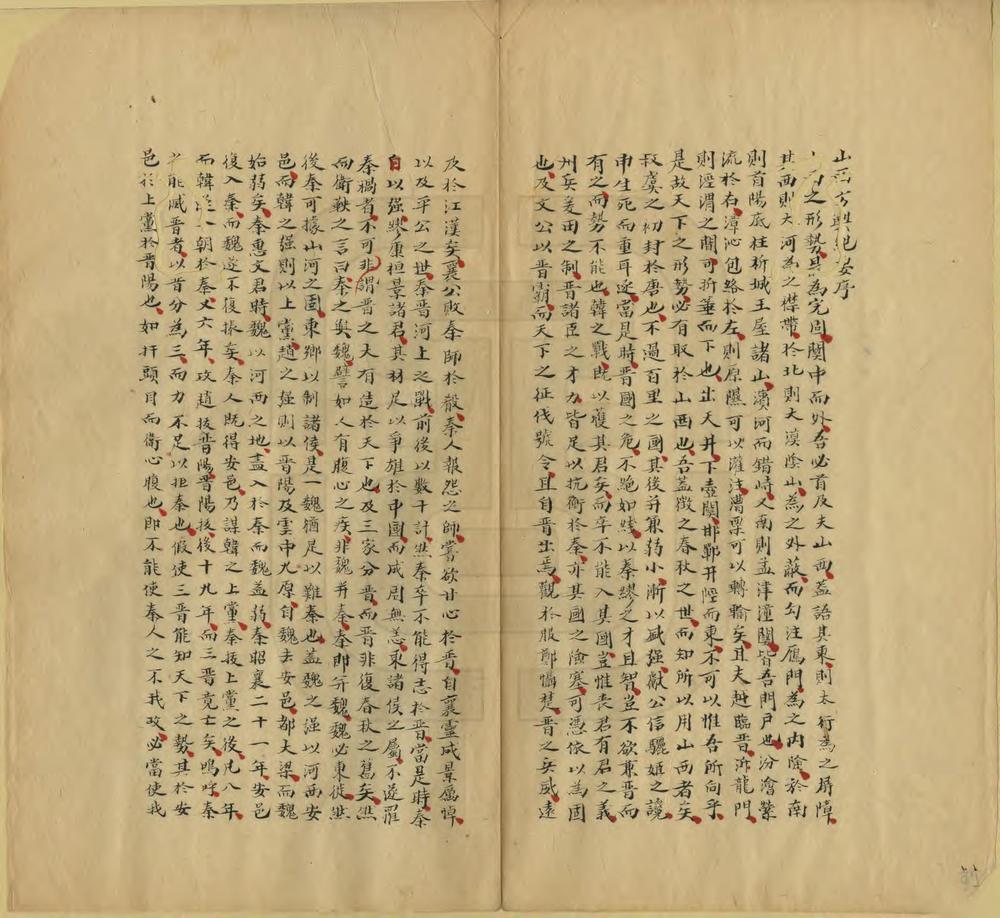 山西方輿紀要序
山西之形勢最為完固關中而外吾必首及夫山西蓋語其東則太行為之屏障
其西則大河為之襟帶於北則大漠陰山為之外蔽而勾注鴈門為之內險於南
則首陽底柱析城王屋諸山濱河而錯峙又南則孟津潼關皆吾門戶也汾澮縈
流於右漳沁包絡於左則原隰可以灌注漕粟可以轉輸矣且夫越臨晉泝龍門
則涇渭之間可折箠而下也出天井下壺關邯鄲井陘而東不可以惟吾所向乎
是故天下之形勢必有取於山西也吾蓋徵之春秋之世而知所以用山西者矣
叔虞之初封於唐也不過百里之國其後并兼弱小漸以盛強獻公信驪姬之讒
申生死而重耳逐當是時晉國之危不絕如綫以秦繆之才且智豈不欲東晉而
有之而勢不能也韓之戰既以獲其君矣而卒不能入其國豈惟喪君有君之義
州兵爰田之制晉諸臣之才力皆足以抗衡於秦亦其國之險塞可憑依以為固
也及文公以晉霸而天下之征伐號令且自晉出焉觀於服鄭懾楚晉之兵威遠
及於江漢矣襄公敗秦師於殽秦人報怨之師嘗欲甘心於晉自襄靈成景厲悼
以及平公之世秦晉河上之戰前後以數十計然秦卒不能得志於晉當是時秦
自以強繆康桓景諸君其材足以爭雄於中國而成周無恙東諸侯之屬不遂罹
秦禍者不可非謂晉之大有造於天下也及三家分晉而晉非復春秋之舊矣然
而衛鞅之言曰秦之與魏譬如人有腹心之疾非魏并秦秦即并魏魏必東徙然
後秦可據山河之固東鄉以制諸侯是一魏猶足以難秦也蓋魏之強以河西安
邑而韓之強則以上黨趙之強則以晉陽及雲中九原自魏去安邑都大梁而魏
始弱矣秦惠文君時魏以河西之地盡入於秦而魏益弱秦昭襄二十一年安邑
復入秦而魏遂不復振矣秦人既得安邑乃謀韓之上黨秦拔上黨之後凡八年
而韓遂入朝於秦又六年攻趙拔晉陽晉陽拔後十九年而三晉竟亡矣嗚呼秦
之能滅晉者以晉分為三而力不足以拒秦也假使三晉能知天下之勢其於安
邑於上黨於晉陽也如扞頭目而衛心腹也即不能使秦人之不我攻必當使我